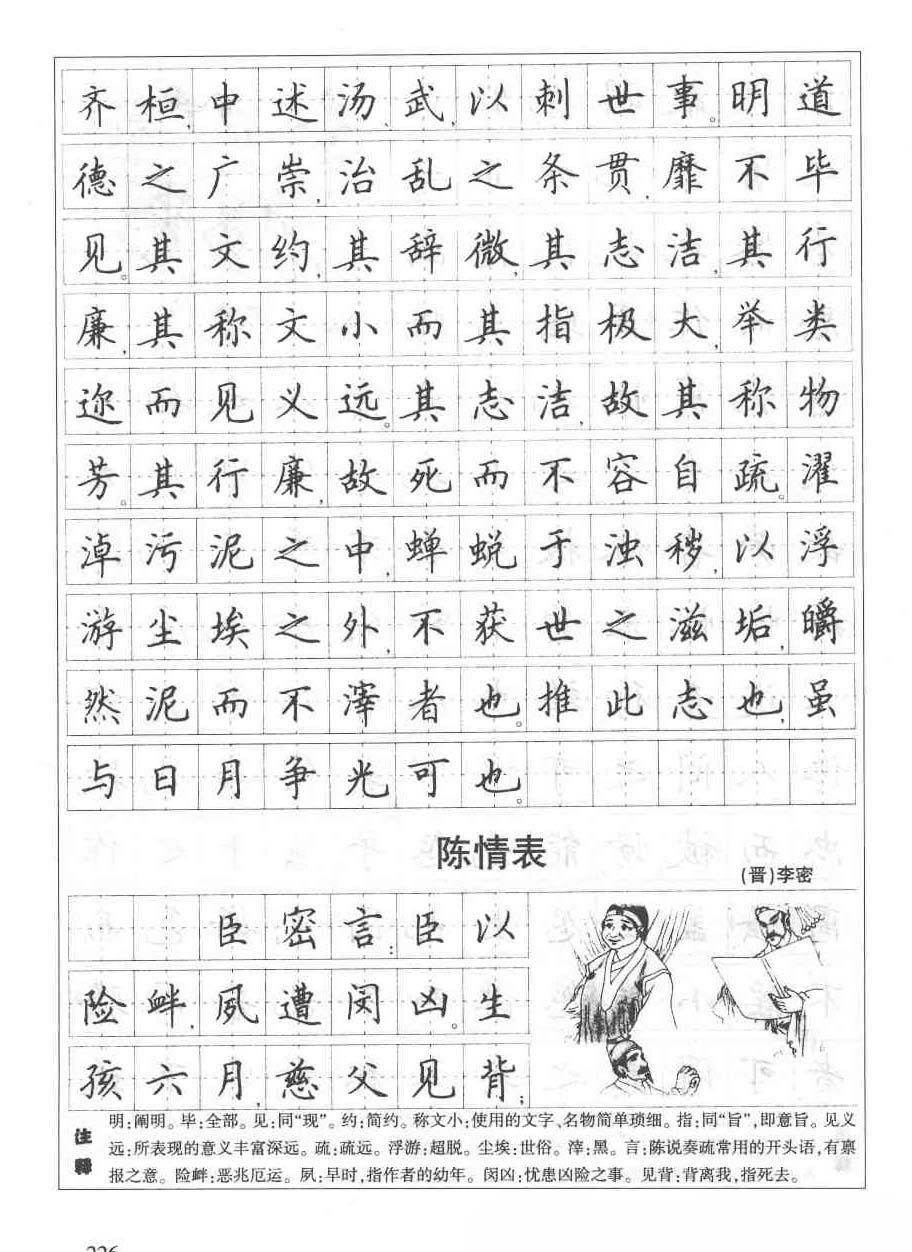 齐桓,中述汤武,以刺世事。明道
德之广崇,治乱之条贯,靡不毕
见。其文约,其辞微,其志洁,其行
廉,其称文小而其指极大,举类
迩而见义远。其志洁,故其称物
芳。其行廉,故死而不容自疏。濯
淖污泥之中,蝉蜕于浊秽,以浮
游尘埃之外,不获世之滋垢,皭
然泥而不滓者也。推此志也,虽
与日月争光可也。
陈情表
(晋)李密
臣密言:臣以
险衅,夙遭闵凶。生
孩六月,慈父见背;
注释
明:阐明。毕:全部。见:同“现”。约:简约。称文小:使用的文字、名物简单琐细。指:同“旨”,即意旨。见义
远:所表现的意义丰富深远。疏:疏远。浮游:超脱。尘埃:世俗。滓:黑。言:陈说奏疏常用的开头语,有禀
报之意。险衅:恶兆厄运。夙:早时,指作者的幼年。闵凶:忧患凶险之事。见背:背离我,指死去。
226